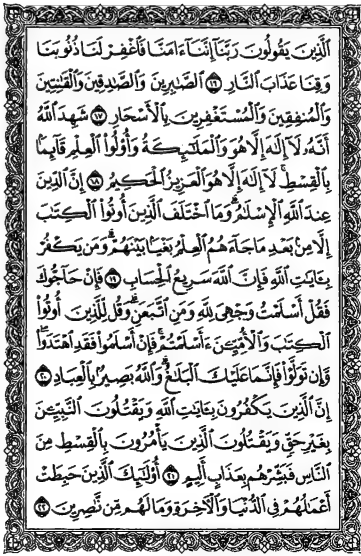 ٱلَّذِينَ يَقُولُونَ رَبَّنَآ إِنَّنَآ ءَامَنَّا فَٱغْفِرْ لَنَا ذُنُوبَنَا
وَقِنَا عَذَابَ ٱلنَّارِ ١٦ ٱلصَّٰبِرِينَ وَٱلصَّٰدِقِينَ وَٱلْقَٰنِتِينَ
وَٱلْمُنفِقِينَ وَٱلْمُسْتَغْفِرِينَ بِٱلْأَسْحَارِ ١٧ شَهِدَ ٱللَّهُ
أَنَّهُۥ لَآ إِلَٰهَ إِلَّا هُوَ وَٱلْمَلَٰٓئِكَةُ وَأُو۟لُوا۟ ٱلْعِلْمِ قَآئِمًۢا
بِٱلْقِسْطِ ۚ لَآ إِلَٰهَ إِلَّا هُوَ ٱلْعَزِيزُ ٱلْحَكِيمُ ١٨ إِنَّ ٱلدِّينَ
عِندَ ٱللَّهِ ٱلْإِسْلَٰمُ ۗ وَمَا ٱخْتَلَفَ ٱلَّذِينَ أُوتُوا۟ ٱلْكِتَٰبَ
إِلَّا مِنۢ بَعْدِ مَا جَآءَهُمُ ٱلْعِلْمُ بَغْيًۢا بَيْنَهُمْ ۗ وَمَن يَكْفُرْ
بِـَٔايَٰتِ ٱللَّهِ فَإِنَّ ٱللَّهَ سَرِيعُ ٱلْحِسَابِ ١٩ فَإِنْ حَآجُّوكَ
فَقُلْ أَسْلَمْتُ وَجْهِىَ لِلَّهِ وَمَنِ ٱتَّبَعَنِ ۗ وَقُل لِّلَّذِينَ أُوتُوا۟
ٱلْكِتَٰبَ وَٱلْأُمِّيِّـۧنَ ءَأَسْلَمْتُمْ ۚ فَإِنْ أَسْلَمُوا۟ فَقَدِ ٱهْتَدَوا۟ ۖ
وَّإِن تَوَلَّوْا۟ فَإِنَّمَا عَلَيْكَ ٱلْبَلَٰغُ ۗ وَٱللَّهُ بَصِيرٌۢ بِٱلْعِبَادِ ٢٠
إِنَّ ٱلَّذِينَ يَكْفُرُونَ بِـَٔايَٰتِ ٱللَّهِ وَيَقْتُلُونَ ٱلنَّبِيِّـۧنَ
بِغَيْرِ حَقٍّ وَيَقْتُلُونَ ٱلَّذِينَ يَأْمُرُونَ بِٱلْقِسْطِ مِنَ
ٱلنَّاسِ فَبَشِّرْهُم بِعَذَابٍ أَلِيمٍ ٢١ أُو۟لَٰٓئِكَ ٱلَّذِينَ حَبِطَتْ
أَعْمَٰلُهُمْ فِى ٱلدُّنْيَا وَٱلْءَاخِرَةِ وَمَا لَهُم مِّن نَّٰصِرِينَ ٢٢